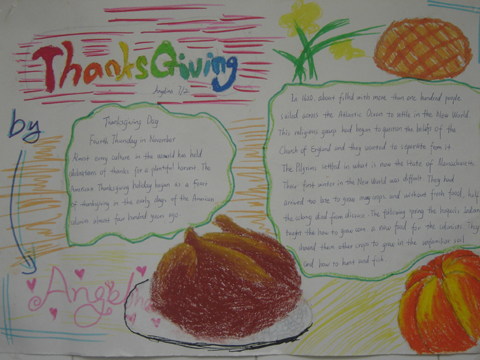 ThanksGiving
Angeline 7/2
by
Angeline
Thanksgiving Day
Fourth Thursday in November
Almost every culture in the world has held
celebrations of thanks for a plentiful harvest. The
American Thanksgiving holiday began as a feast
of thanksgiving in the early days of the American
colonies almost four hundred years ago.
In 1620, a boat filled with more than one hundred people
sailed across the Atlantic Ocean to settle in the New World.
This religious group had begun to question the beliefs of the
Church of England and they wanted to separate from it.
The Pilgrims settled in what is now the state of Massachusetts.
Their first winter in the New World was difficult. They had
arrived too late to grow many crops, and without fresh food, half
the colony died from disease. The following spring the Iroquois Indians
taught them how to grow corn, a new food for the colonists. They
showed them other crops to grow in the unfamiliar soil
and how to hunt and fish.